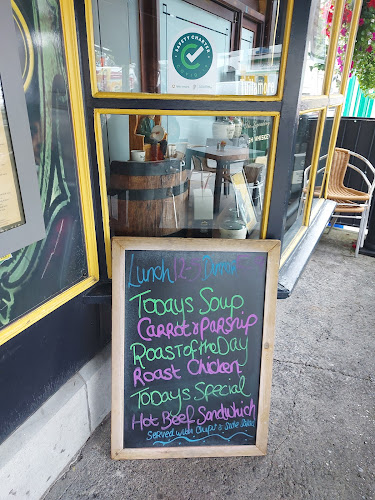 SAFETY CHARTER
WHISKEY
Lunch 12-5
Todays Soup
Carrot & Parsnip
Roast of the Day
Roast Chicken
Todays Special
Hot Beef Sandwhich
Served with Chips & Side Salad